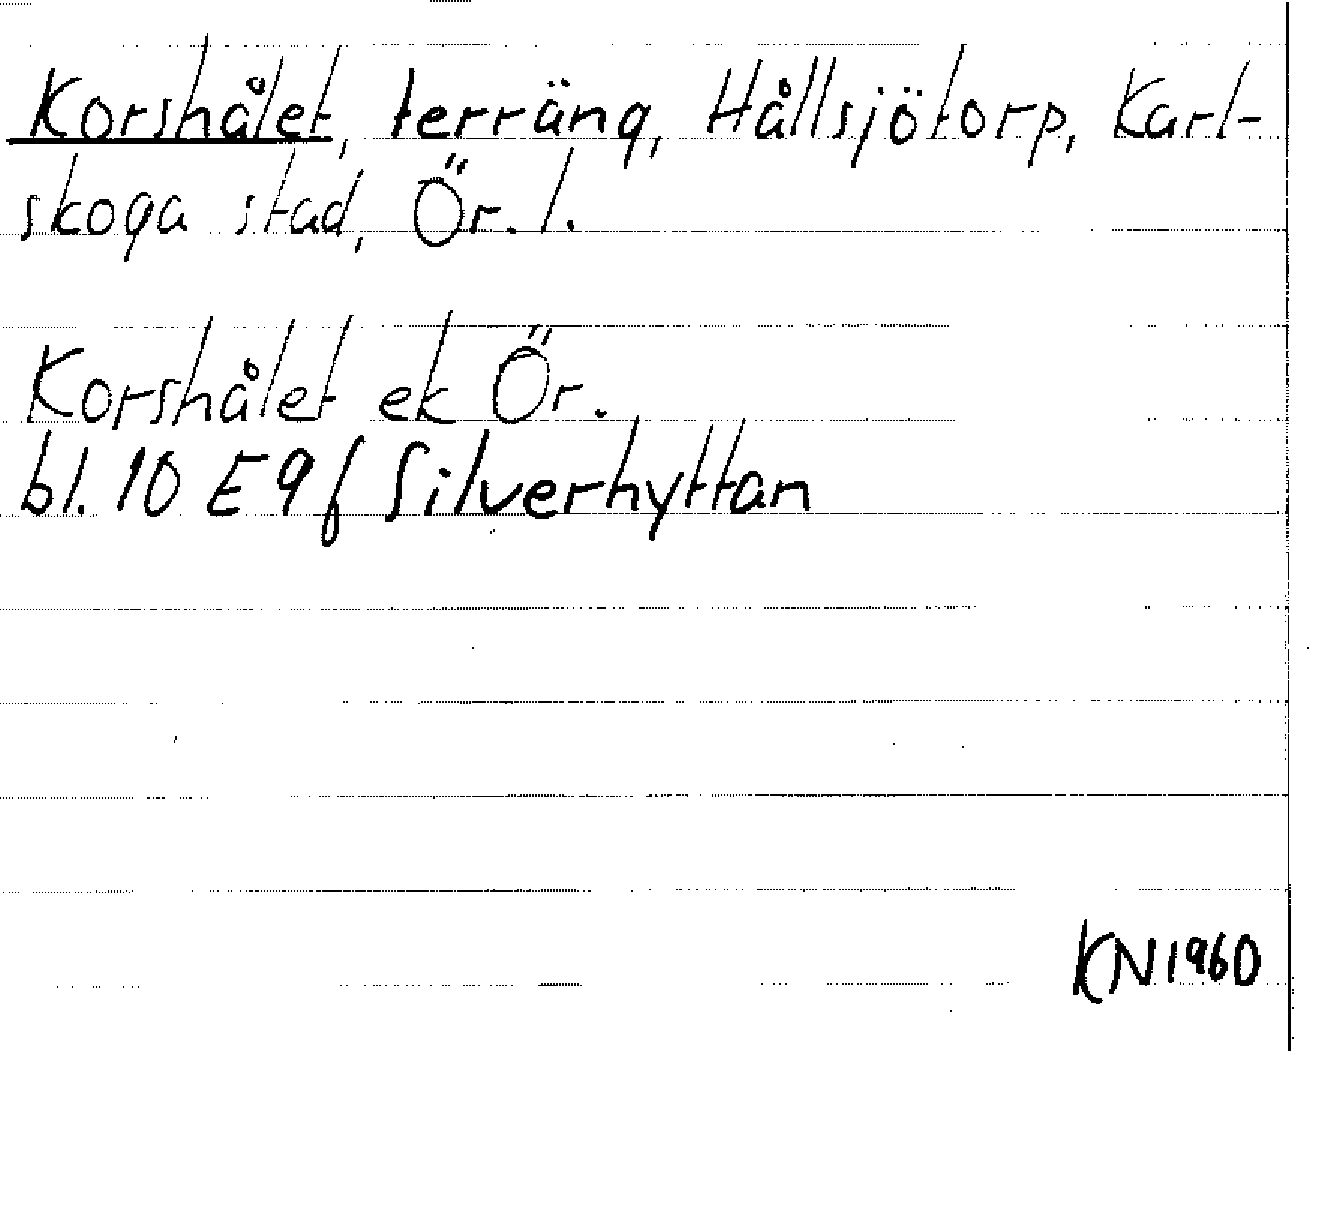 Korshålet, terräng, Hållsjötorp, Karl-
skoga stad, Ör. l.
Korshålet ek Ör.
bl. 10 E 9 f Silverhyttan
KN 1960